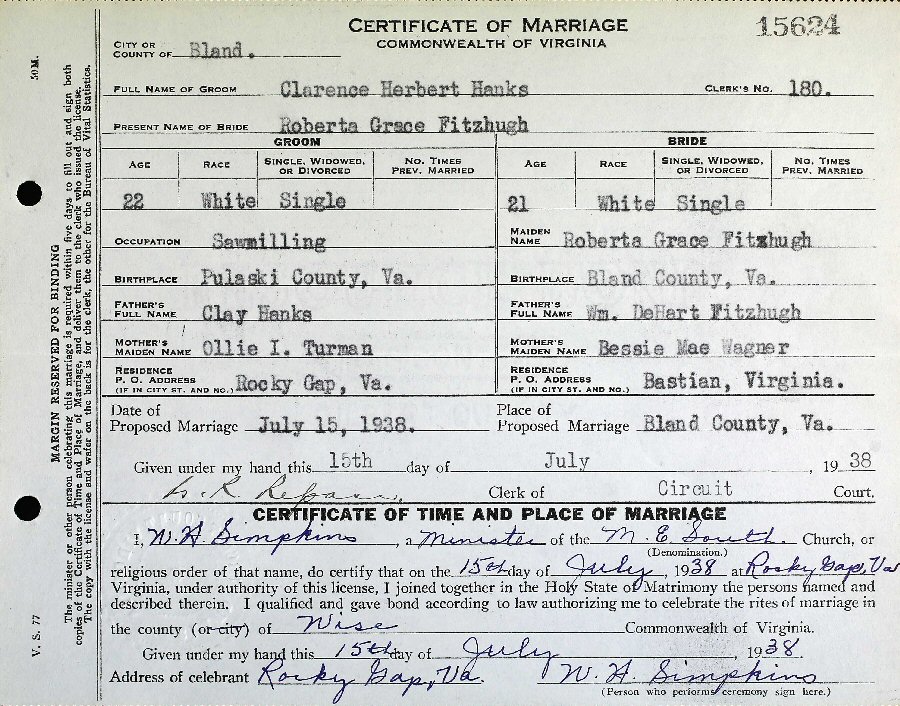 CERTIFICATE OF MARRIAGE
15624
COMMONWEALTH OF VIRGINIA
CITY OR
COUNTY OF Bland.
FULL NAME OF GROOM Clarence Herbert Hanks CLERK'S NO. 180.
PRESENT NAME OF BRIDE Roberta Grace Fitzhugh
GROOM BRIDE
AGE RACE SINGLE, WIDOWED, OR DIVORCED NO. TIMES PREV. MARRIED AGE RACE SINGLE, WIDOWED, OR DIVORCED NO. TIMES PREV. MARRIED
22 White Single 21 White Single
OCCUPATION Sawmilling MAIDEN NAME Roberta Grace Fitzhugh
BIRTHPLACE Pulaski County, Va. BIRTHPLACE Bland County, Va.
FATHER'S FULL NAME Clay Hanks FATHER'S FULL NAME Wm. DeHart Fitzhugh
MOTHER'S MAIDEN NAME Ollie I. Turman MOTHER'S MAIDEN NAME Bessie Mae Wagner
RESIDENCE P. O. ADDRESS (IF IN CITY ST. AND NO.) Rocky Gap, Va. RESIDENCE P. O. ADDRESS (IF IN CITY ST. AND NO.) Bastian, Virginia.
Date of Proposed Marriage July 15, 1938. Place of Proposed Marriage Bland County, Va.
Given under my hand this 15th day of July, 1938
Clerk of Circuit Court.
CERTIFICATE OF TIME AND PLACE OF MARRIAGE
I, W. H. Simpkins, a Minister of the M. E. South. Church, or
(Denomination.)
religious order of that name, do certify that on the 15th day of July, 1938 at Rocky Gap, Va
Virginia, under authority of this license, I joined together in the Holy State of Matrimony the persons named and
described therein. I qualified and gave bond according to law authorizing me to celebrate the rites of marriage in
the county (or city) of Wise Commonwealth of Virginia.
Given under my hand this 15th day of July, 1938.
Address of celebrant Rocky Gap, Va. W. H. Simpkins
(Person who performs ceremony sign here.)
V. S. 77
50M.
MARGIN RESERVED FOR BINDING
The minister or other person celebrating this marriage is required within five days to fill out and sign both
copies of the Certificate of Time and Place of Marriage, and deliver them to the clerk who issued the license.
The copy with the license and wafer on the back is for the clerk, the other for the Bureau of Vital Statistics.